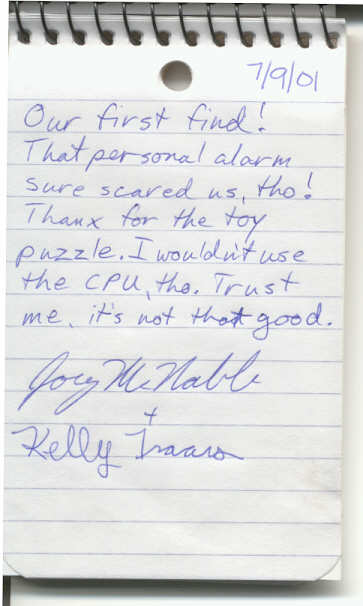 7/9/01
Our first find!
That personal alarm
sure scared us, tho!
Thanx for the toy
puzzle. I wouldn't use
the CPU, tho. Trust
me, it's not that good.
Joey McNabb
+
Kelly